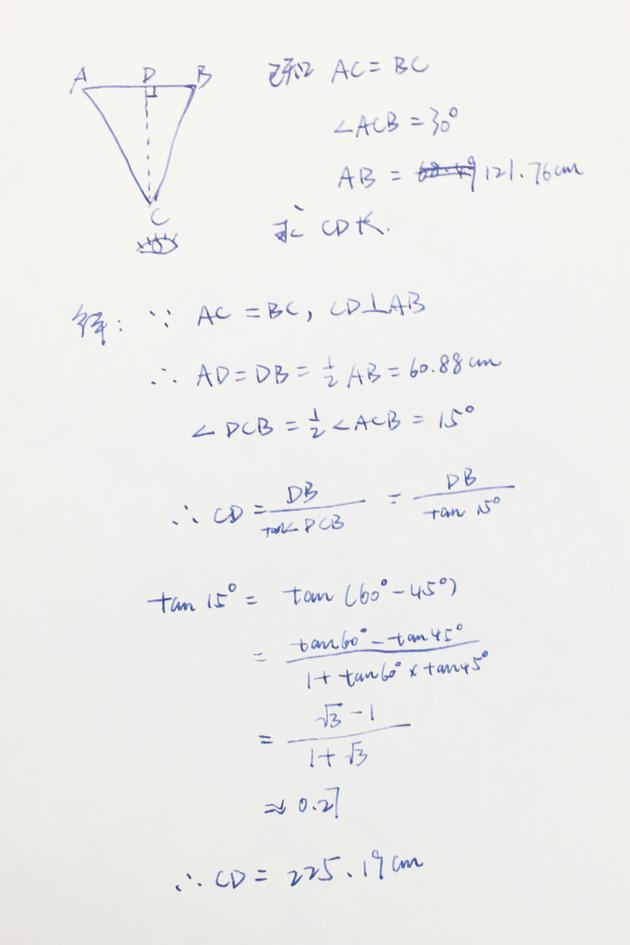 A D B
C
已知 AC = BC
∠ACB = 30°
AB = 121.76cm
求 CD长.
解: ∵ AC = BC, CD⊥AB
∴ AD = DB = 1/2 AB = 60.88cm
∠DCB = 1/2 ∠ACB = 15°
∴ CD = DB / tan∠DCB = DB / tan 15°
tan 15° = tan (60° - 45°)
= (tan60° - tan45°) / (1 + tan60° × tan45°)
= (√3 - 1) / (1 + √3)
≈ 0.27
∴ CD = 225.19cm